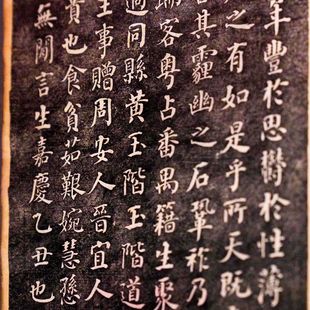 年豐於思鬱於性薄
之有如是乎所天既
其霾幽之石鞏祚乃
客粵占番禺籍生聚
適同縣黃玉階玉階道
生事贈周安人晉宜人
貴也食貧茹艱婉慧愻
無閒言生嘉慶乙丑也